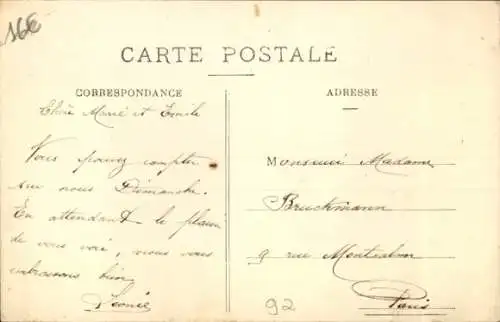 16E
CARTE POSTALE
CORRESPONDANCE
Chère Marie et Emile
Vous pouvez compter
sur nous Dimanche.
En attendant le plaisir
de vous voir, nous vous
embrassons bien
Léonie
ADRESSE
Monsieur Madame
Bruckmann
9 rue Montcalm
Paris
92